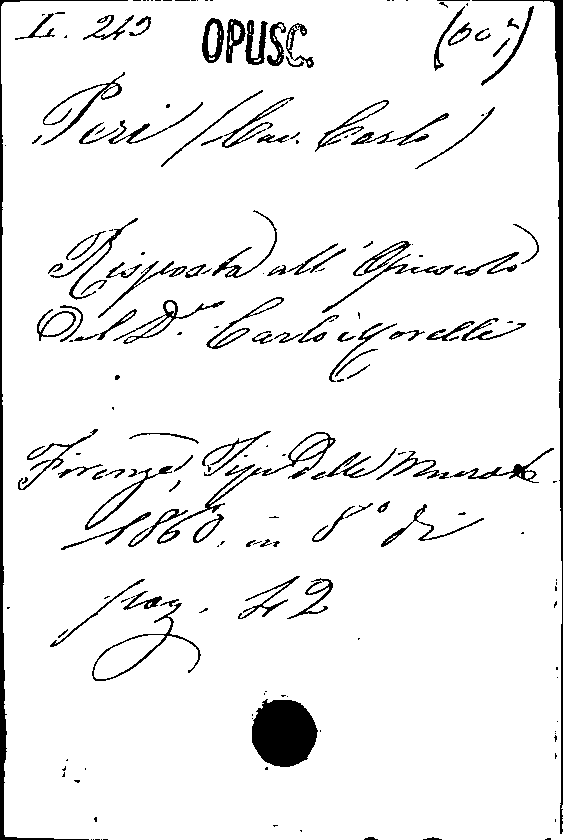 L. 243 OPUSC. (607)
Peri (Cav. Carlo)
Risposta all'Opuscolo
del D.re Carlo Morelli
Firenze, Tipi delle Murate
1860. in 8° di
pag. 42